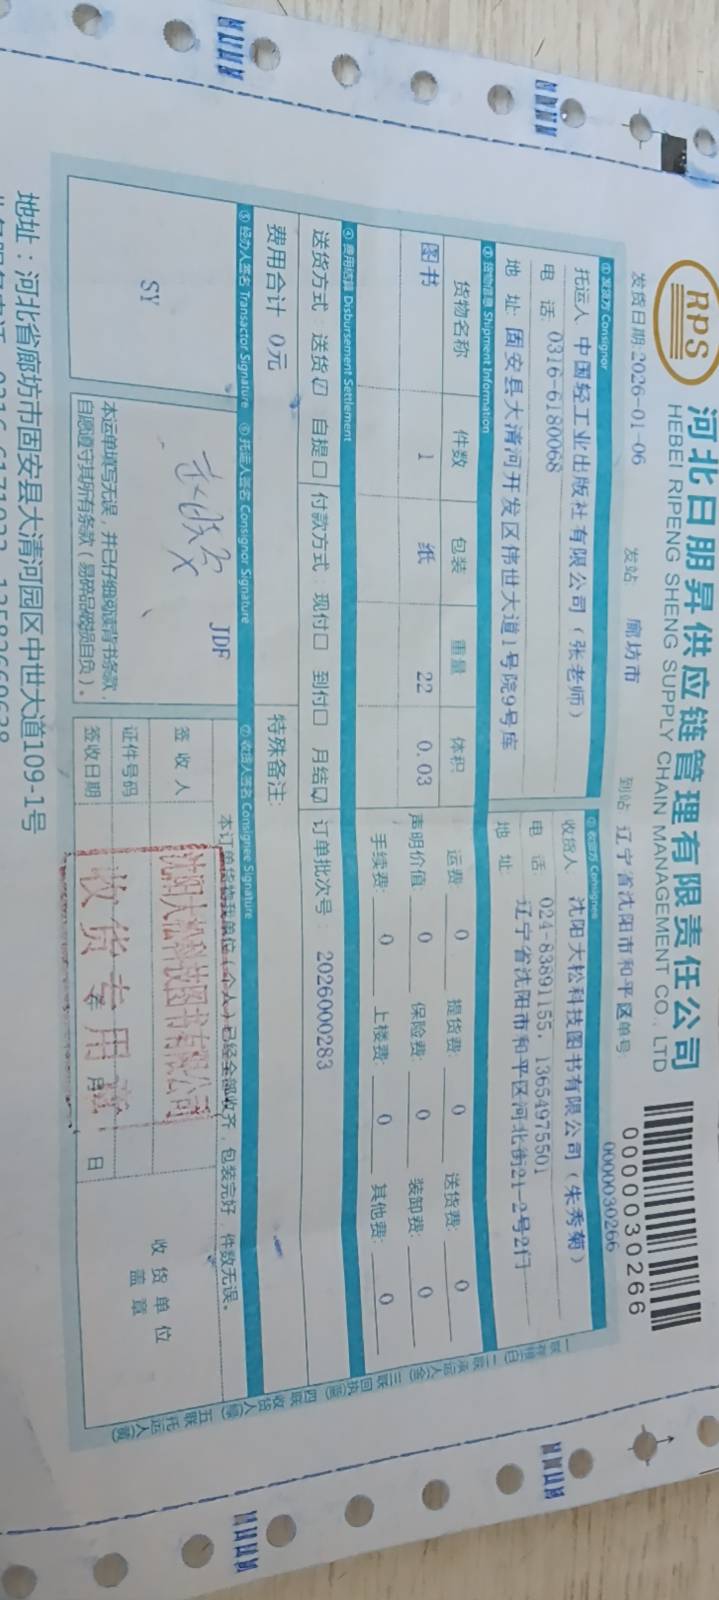 RPS
河北日朋昇供应链管理有限责任公司
HEBEI RIPENG SHENG SUPPLY CHAIN MANAGEMENT CO., LTD
0000030266
发货日期:2026-01-06 发站 廊坊市 到站 辽宁省沈阳市和平区 单号: 0000030266
① 发货方 Consignor
托运人 中国轻工业出版社有限公司(张老师)
电 话 0316-6180068
地 址 固安县大清河开发区伟世大道1号院9号库
② 收货方 Consignee
收货人 沈阳大松科技图书有限公司(朱秀菊)
电 话 024-83891155, 13654975501
地 址 辽宁省沈阳市和平区河北街21-2号2门
③ 货物信息 Shipment Information
货物名称 件数 包装 重量 体积
图书 1 纸 22 0.03
运费 0 提货费: 0 送货费: 0
声明价值 0 保险费: 0 装卸费: 0
手续费: 0 上楼费: 0 其他费: 0
④ 费用结算 Disbursement Settlement
送货方式: 送货☑ 自提□ 付款方式: 现付□ 到付□ 月结☑ 订单批次号: 2026000283
费用合计 0元 特殊备注:
⑤ 经办人签名 Transactor Signature ⑥ 托运人签名 Consignor Signature ⑦ 收货人签名 Consignee Signature
SY
JDF
本运单填写无误,并已仔细阅读背书条款,
自愿遵守其所有条款(易碎品破损自负)。
本订单货物我单位(个人)已经全部收齐,包装完好,件数无误。
签 收 人
证件号码
签收日期 年 月 日
收货单位
盖章
沈阳大松科技图书有限公司
收货专用章
一联存根(白) 二联承运人(金) 三联回执(蓝) 四联收货人(绿) 五联托运人(黄)
地址:河北省廊坊市固安县大清河园区中世大道109-1号